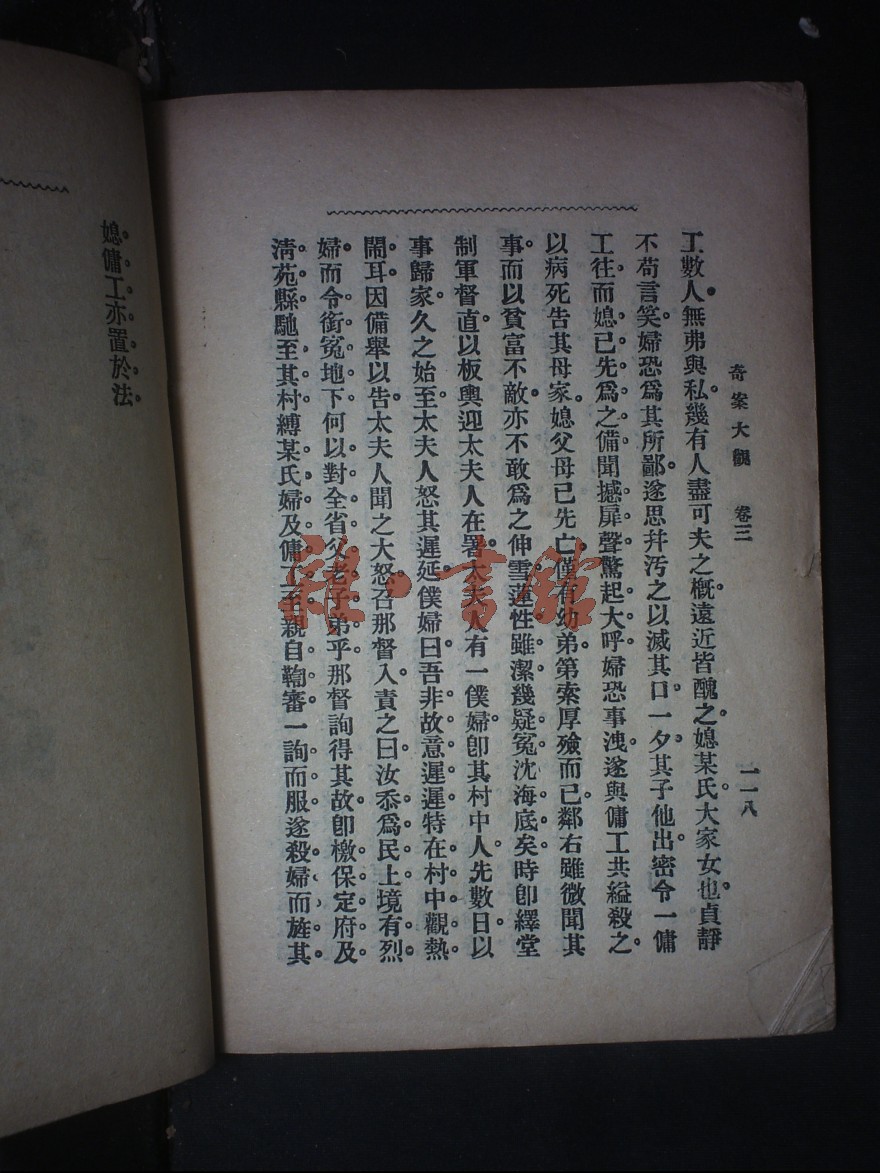 奇案大觀　卷三
一一八
工數人。無弗與私。幾有人盡可夫之概。遠近皆醜之。媳某氏大家女也。貞靜
不苟言笑。婦恐爲其所鄙。遂思幷汚之以滅其口。一夕。其子他出。密令一傭
工往。而媳已先爲之備。聞撼扉聲驚起大呼。婦恐事洩。遂與傭工共縊殺之。
以病死告其母家。媳父母已先亡。僅有幼弟。第索厚殮而已。鄰右雖微聞其
事。而以貧富不敵。亦不敢爲之伸雪。蓮性雖潔。幾疑冤沈海底矣。時卽繹堂
制軍督直。以板輿迎太夫人在署。太夫人有一僕婦。卽其村中人。先數日以
事歸家。久之始至。太夫人怒其遲延。僕婦曰。吾非故意遲遲。特在村中觀熱
鬧耳。因備舉以告。太夫人聞之大怒。召那督入。責之曰。汝忝爲民上。境有烈
婦。而令銜冤地下。何以對全省父老子弟乎。那督詢得其故。卽檄保定府及
淸苑縣。馳至其村。縛某氏婦及傭工至。親自鞫審。一詢而服。遂殺婦而旌其
媳。傭工亦置於法。
雜·書館